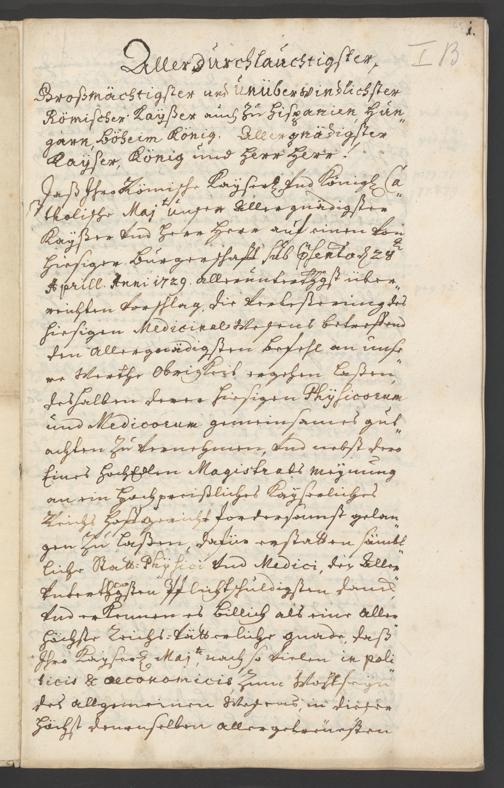 1.
I B
Allerdurchlauchtigster,
Großmächtigster und Unüberwindlichster
Römischer Kayßer auch zu Hispanien Hun-
garn, Böheim König. Allergnädigster
Kayser, König und Herr Herr!
Daß Ihro Römische Kayserl. und Königl. Ca-
tholische Maj.t unser Allergnädigster
Kayßer und Herr Herr auf einen von
hiesiger Burgerschafft sub 28
Aprill. Anni 1729. allerunterthgst über-
reichten Vorschlag, die Verbesserung des
hiesigen Medicinal Wesens betreffend
den Allergnädigsten befehl an unse-
re Werthe Obrigkeit ergehen laßen,
deshalben derer hiesigen Physicorum
und Medicorum gemeinsames gut-
achten zu vernehmen, und nebst dero
Eines HochEdlen Magistrats meynung
an ein Hochpreißliches Kayserliches
Reichs Hofgericht fordersamst gelan-
gen zu laßen, dafür erstatten sämbt-
liche Statt Physici und Medici, den Aller-
unterthgsten Pflichtschuldigsten danck,
und erkennen es billich als eine Aller-
höchste Reichs-Vätterliche gnade, daß
Ihro Kayserl. Maj.t nach so vielen in poli-
ticis & oeconomicis zum Wohlseyn
des allgemeinen Wesens, in dieser
Höchst denenselben allergetreuesten